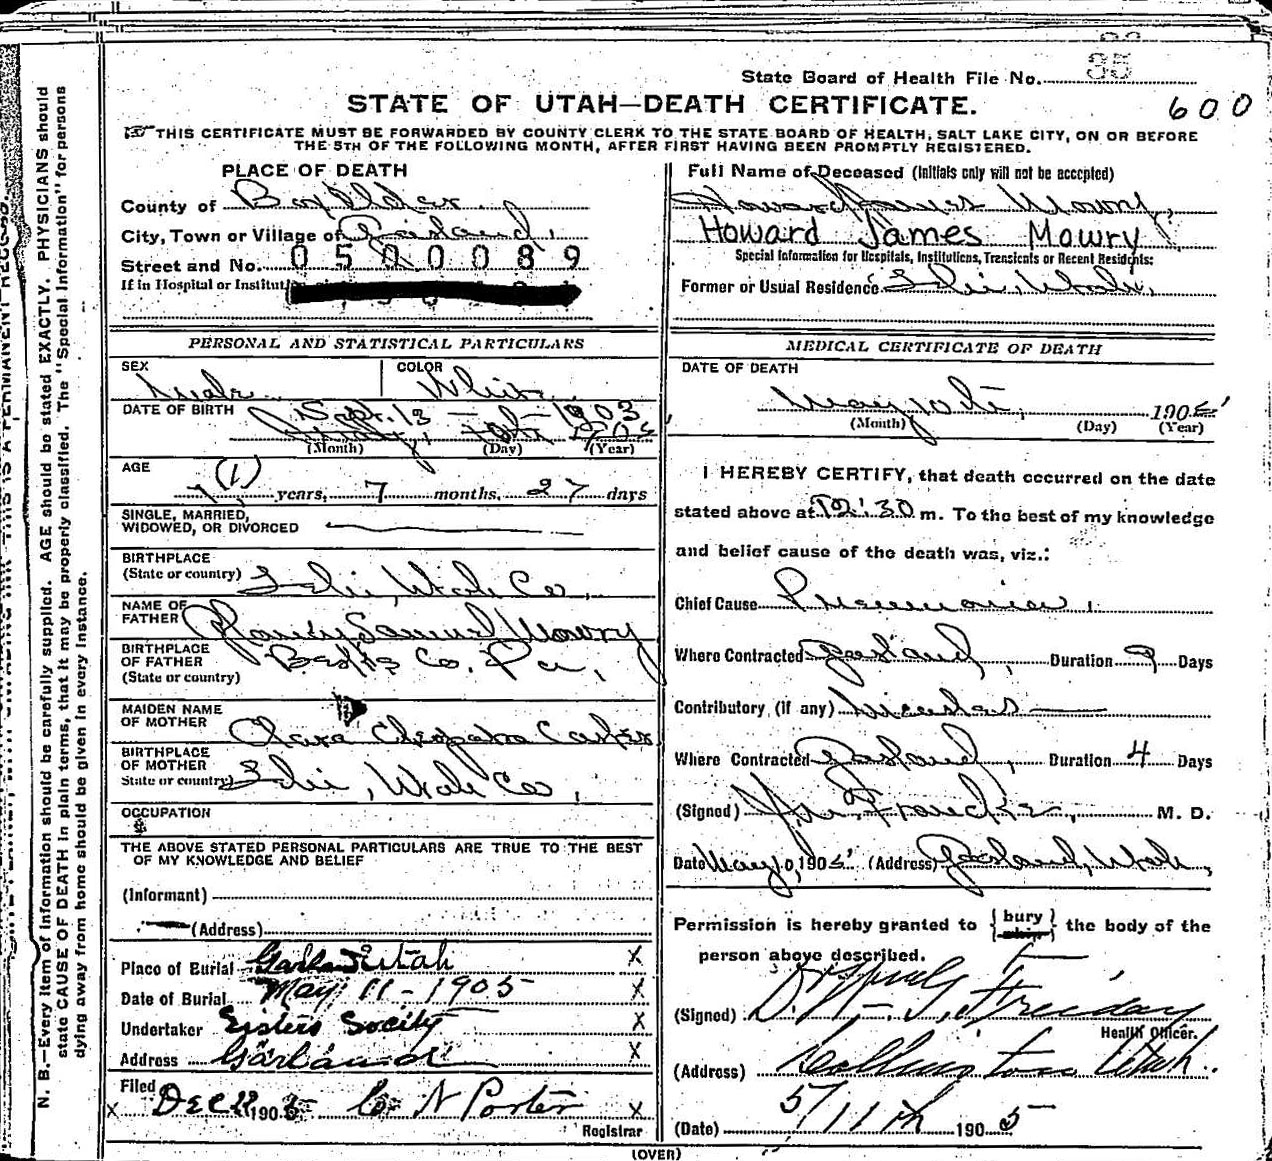 State Board of Health File No. 35
STATE OF UTAH—DEATH CERTIFICATE.
600
THIS CERTIFICATE MUST BE FORWARDED BY COUNTY CLERK TO THE STATE BOARD OF HEALTH, SALT LAKE CITY, ON OR BEFORE
THE 5TH OF THE FOLLOWING MONTH, AFTER FIRST HAVING BEEN PROMPTLY REGISTERED.
N. B.—Every item of information should be carefully supplied. AGE should be stated EXACTLY. PHYSICIANS should
state CAUSE OF DEATH in plain terms, that it may be properly classified. The "Special Information" for persons
dying away from home should be given in every instance.
PLACE OF DEATH
County of Box Elder.
City, Town or Village of Garland,
Street and No. 0500089
If in Hospital or Instituti
Full Name of Deceased (Initials only will not be accepted)
Howard James Mowry,
Howard James Mowry
Special Information for Hospitals, Institutions, Transients or Recent Residents:
Former or Usual Residence Lehi, Utah.
PERSONAL AND STATISTICAL PARTICULARS
SEX Male
COLOR White
DATE OF BIRTH Sept. 13 — 1903
(Month) (Day) (Year)
AGE (1) years, 7 months, 27 days
SINGLE, MARRIED,
WIDOWED, OR DIVORCED
BIRTHPLACE
(State or country) Lehi, Utah Co.,
NAME OF
FATHER Samuel Mowry
BIRTHPLACE
OF FATHER Co. Pa,
(State or country)
MAIDEN NAME
OF MOTHER Clara Cleopatra
BIRTHPLACE
OF MOTHER
State or country) Lehi, Utah Co,
OCCUPATION
THE ABOVE STATED PERSONAL PARTICULARS ARE TRUE TO THE BEST
OF MY KNOWLEDGE AND BELIEF
(Informant)
(Address)
Place of Burial Garland Utah X
Date of Burial May 11 - 1905 X
Undertaker Sisters Socity X
Address Garland X
Filed
X Dec 1905 N Porter X
Registrar
MEDICAL CERTIFICATE OF DEATH
DATE OF DEATH
May 10th, 1905
(Month) (Day) (Year)
I HEREBY CERTIFY, that death occurred on the date
stated above at 12:30 m. To the best of my knowledge
and belief cause of the death was, viz.:
Chief Cause Pneumonia,
Where Contracted Garland, Duration 9 Days
Contributory, (if any) Measles
Where Contracted Garland, Duration 4 Days
(Signed) M. D.
Date May 10, 1905 (Address) Garland, Utah,
Permission is hereby granted to {bury} the body of the
person above described.
(Signed)
Health Officer.
(Address) Collinston Utah.
(Date) 5/11th 1905
(OVER)